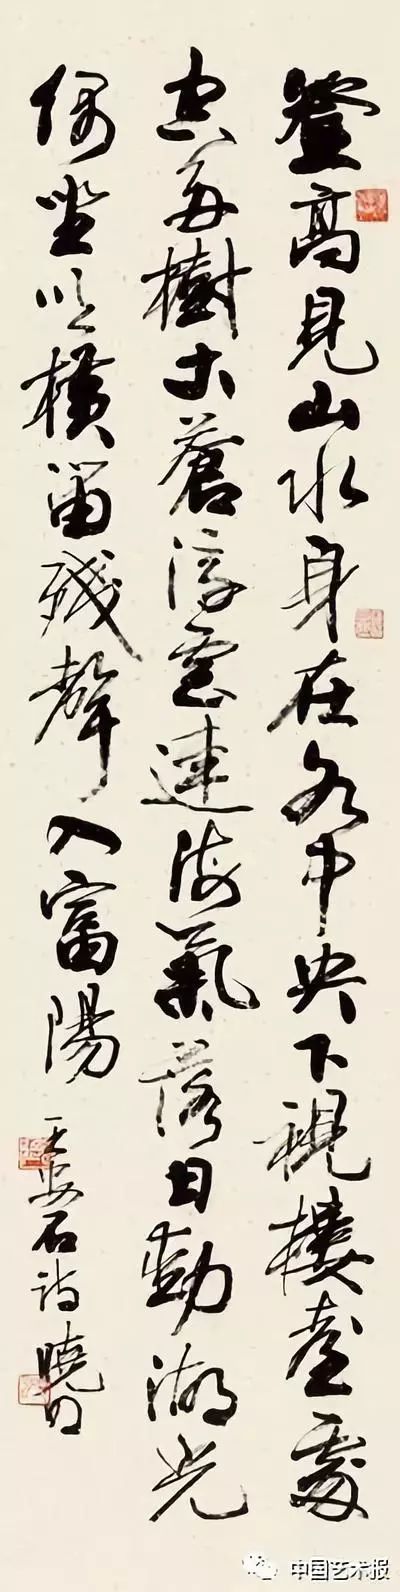 登高見山水身在水中央下視樓臺處
空多樹木蒼浮雲連海氣落日動湖光
偶坐吹橫笛殘聲入富陽
王安石詩曉明
中国艺术报